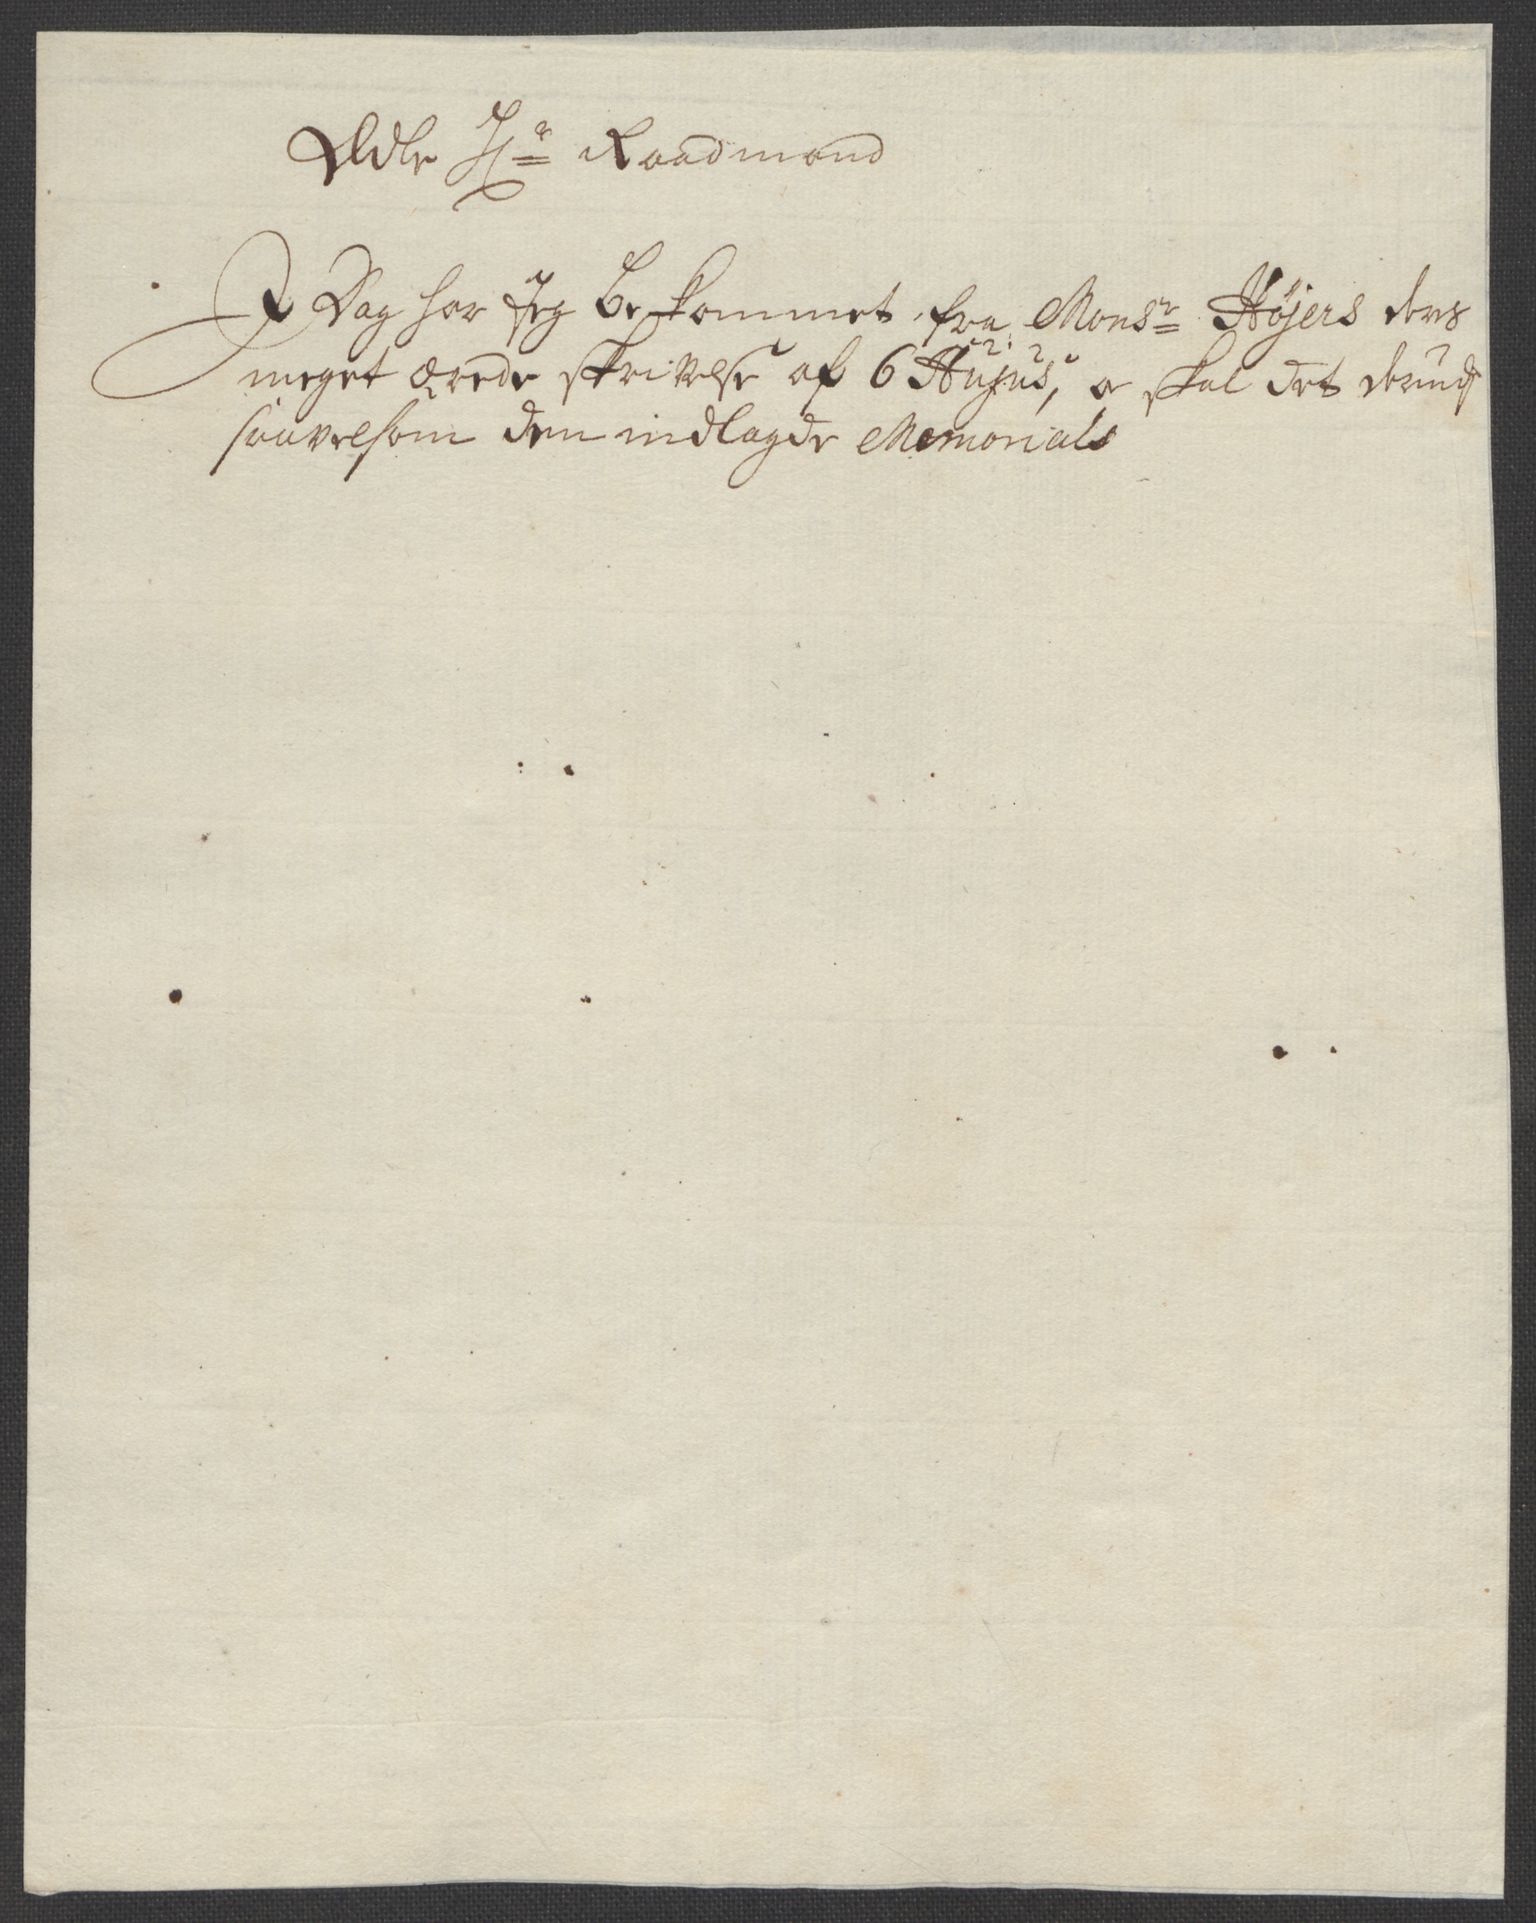 Ædle Hr Raadmand
I Dag har Jeg bekommet fra Monsr Høyers ders
meget ærede skrivelse af 6 Hujus, o skal det derud
saavelsom den indlagde Memorials